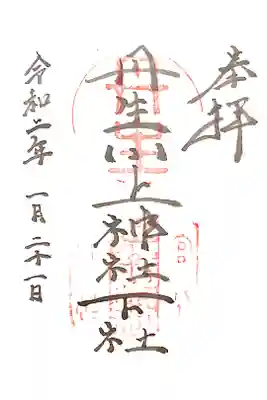 奉拝
丹生川上神社下社
令和二年 一月二十一日